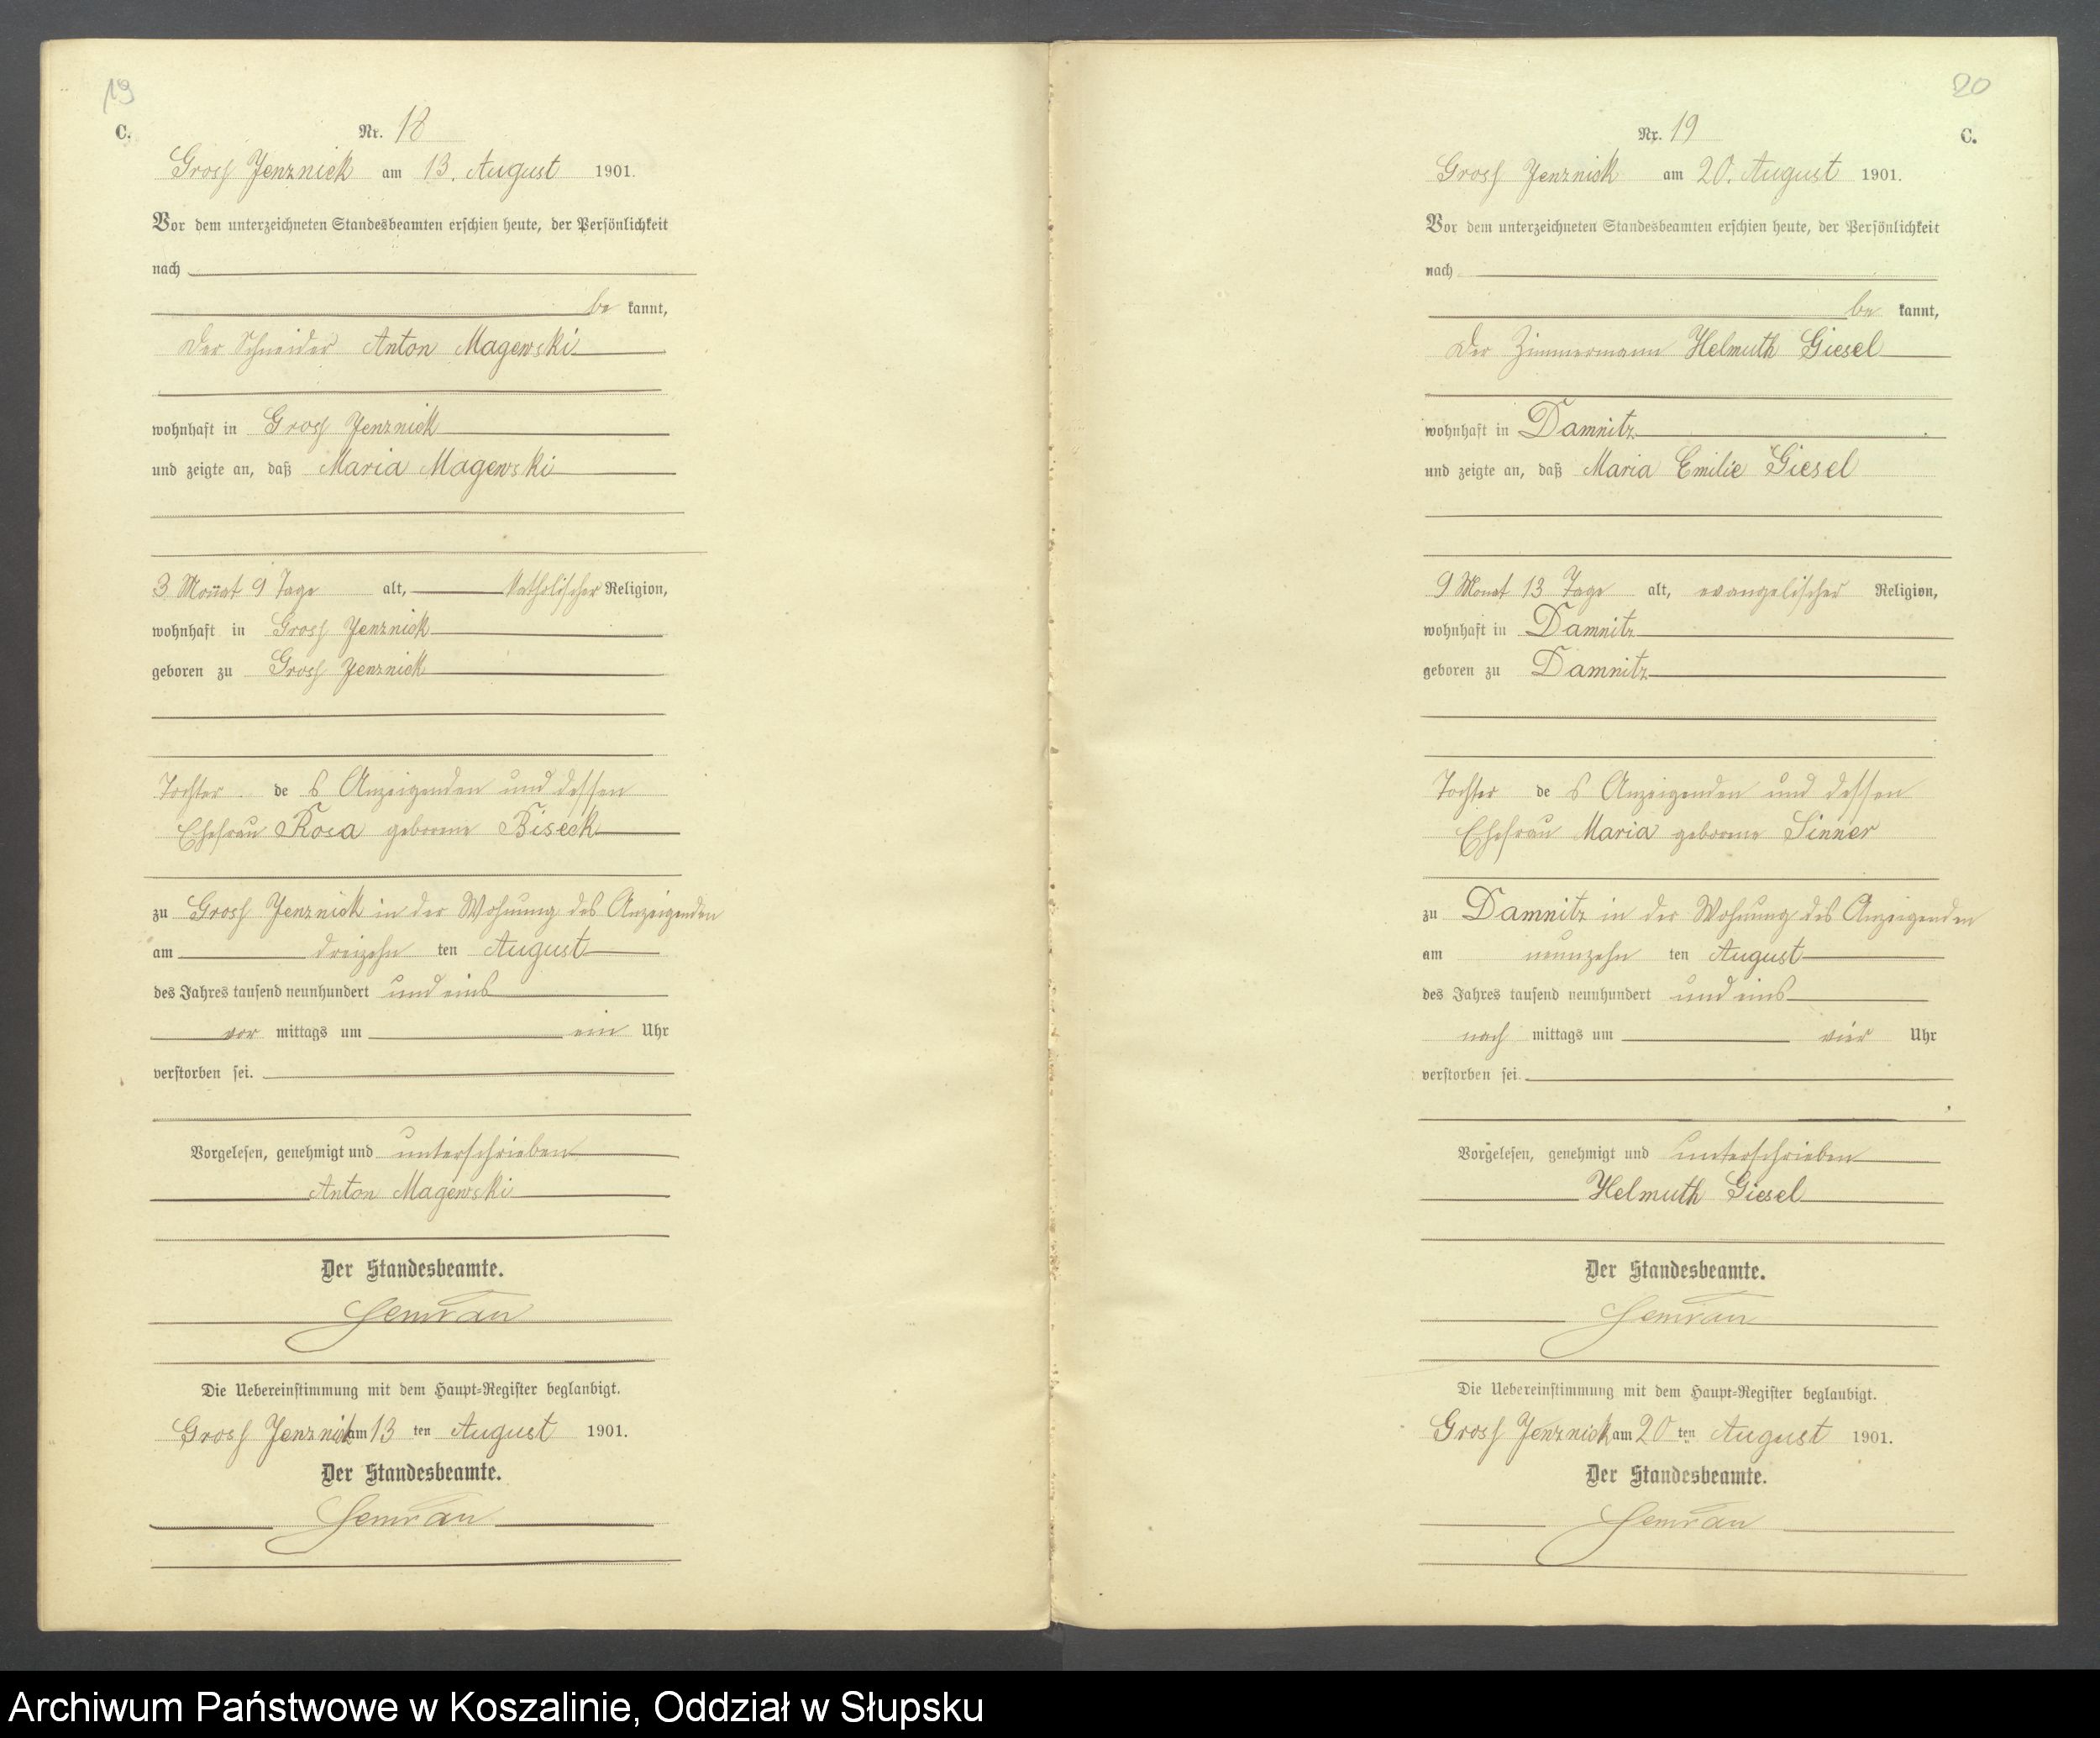 19
C.
Nr. 18
Gross Jenznick am 13. August 1901.
Vor dem unterzeichneten Standesbeamten erschien heute, der Persönlichkeit
nach
be kannt,
der Schneider Anton Magewski
wohnhaft in Gross Jenznick
und zeigte an, daß Maria Magewski
3 Monat 9 Tage alt, katholischer Religion,
wohnhaft in Gross Jenznick
geboren zu Gross Jenznick
Tochter des Anzeigenden und dessen
Ehefrau Rosa geborene Biseck
zu Gross Jenznick in der Wohnung des Anzeigenden
am dreizehn ten August
des Jahres tausend neunhundert und eins
vor mittags um ein Uhr
verstorben sei.
Vorgelesen, genehmigt und unterschrieben
Anton Magewski
Der Standesbeamte.
Semrau
Die Uebereinstimmung mit dem Haupt-Register beglaubigt.
Gross Jenznick am 13 ten August 1901.
Der Standesbeamte.
Semrau
20
Nr. 19
C.
Gross Jenznick am 20. August 1901.
Vor dem unterzeichneten Standesbeamten erschien heute, der Persönlichkeit
nach
be kannt,
der Zimmermann Helmuth Giesel
wohnhaft in Damnitz
und zeigte an, daß Maria Emilie Giesel
9 Monat 13 Tage alt, evangelischer Religion,
wohnhaft in Damnitz
geboren zu Damnitz
Tochter des Anzeigenden und dessen
Ehefrau Maria geborene Sinner
zu Damnitz in der Wohnung des Anzeigenden
am neunzehn ten August
des Jahres tausend neunhundert und eins
nach mittags um vier Uhr
verstorben sei.
Vorgelesen, genehmigt und unterschrieben
Helmuth Giesel
Der Standesbeamte.
Semrau
Die Uebereinstimmung mit dem Haupt-Register beglaubigt.
Gross Jenznick am 20 ten August 1901.
Der Standesbeamte.
Semrau
Archiwum Państwowe w Koszalinie, Oddział w Słupsku